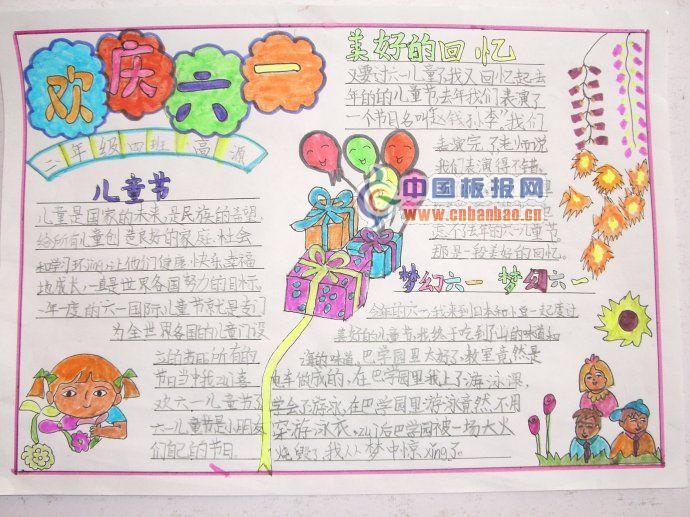 欢庆六一
二年级四班 高源
儿童节
儿童是国家的未来,是民族的希望,
给所有儿童创造良好的家庭、社会
和学习环jing,让他们健康、快乐、幸福
地成长,一直是世界各国努力的目标。
一年一度的六一国际儿童节就是专门
为全世界各国的儿童们设
立的节日。所有的
节日当中我zui喜
欢六一儿童节了,
六一儿童节是小朋友
们自己的节日。
美好的回忆
又要过六一儿童了,我又回忆起去
年的的儿童节,去年我们表演了
一个节目名叫《赵钱孙李》。我们
表演完了老师说
我们表演得不错。
忘不了去年的六一儿童节。
那是一段美好的回忆。
中国板报网
www.cnbanbao.cn
梦幻六一 梦幻六一
今年的六一我来到日本和小豆一起度过
美好的儿童节,我终于吃到了山的味道和
海的味道,巴学园里太好了,教室竟然是
电车做成的,在巴学园里我上了游泳课,
学会了游泳,在巴学园里游泳竟然不用
穿游泳衣,zui后巴学园被一场大火
烧毁了,我从梦中惊xing了。